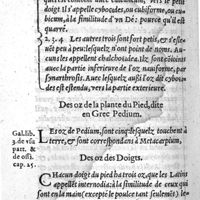 doigt est contenu l'os cubicum, ...
appellez cyboides, ou cubiforme, ou cu-
bicum, à la similitude d'un Dé: pource qu'il est
quarré.
2. 3. 4 Les autres trois sont fort petis, & s'esle-
uẽt peu, lesquelz n'ont point de noms. Au-
cuns les appellent chalchoidea. ilz sont
auec la partie inferieure de l'os nauiforme, par
synarthrosis. Auec lesquelz aussi l'oz dit cyboi-
des est estendu, vers la partie exterieure.
Des oz de la plante du Pied, dite
en Grec Pedium.
Gal. lib.
3. de vsu
part. &
de ossi.
cap. 25.
LEs oz de Pedium, sont cinq: lesquelz touchent à
terre, & sont correspondans à Metacarpium,
Des oz des Doigts.
CHacun doigt du pied ha trois oz, que les Latins
appellent internodia: à la similitude de ceux qui
sont en la main: (excepté le poulce